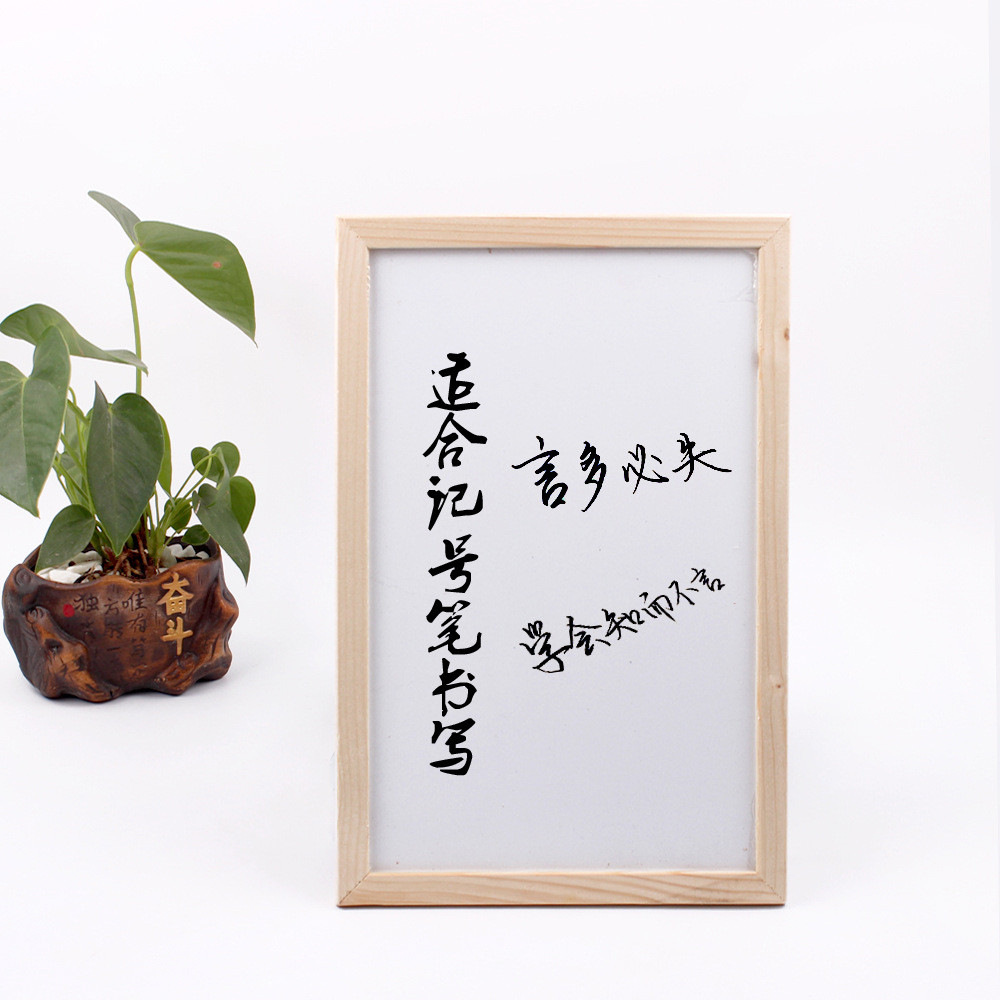 适合记号笔书写
言多必失
学会知而不言
奋斗